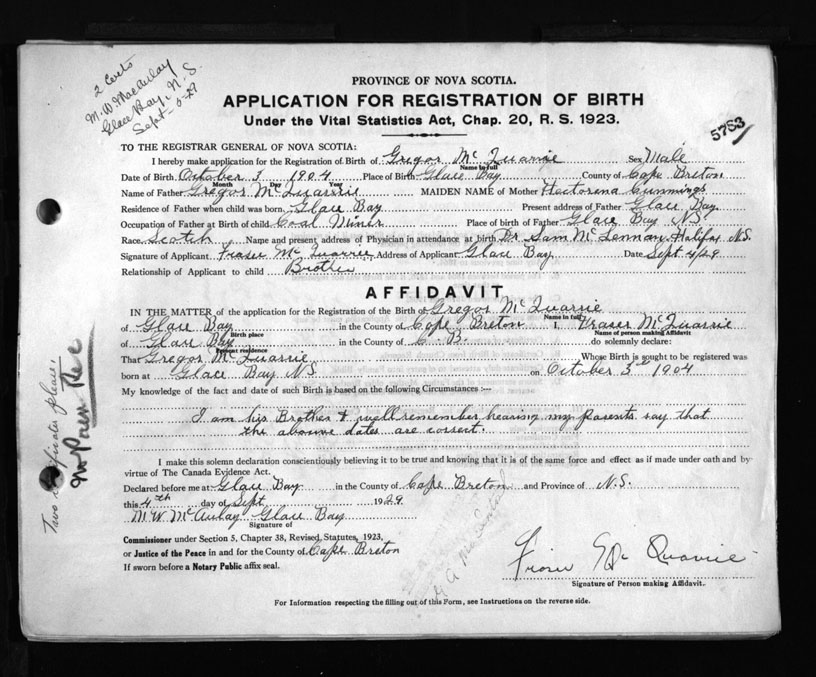 2 Certs
M. W. MacAulay
Glace Bay, N. S.
Sept
PROVINCE OF NOVA SCOTIA.
APPLICATION FOR REGISTRATION OF BIRTH
Under the Vital Statistics Act, Chap. 20, R. S. 1923.
5783
TO THE REGISTRAR GENERAL OF NOVA SCOTIA:
I hereby make application for the Registration of Birth of Gregor Mc Quarrie Sex Male
Name in full
Date of Birth October 3 1904 Place of Birth Glace Bay County of Cape Breton
Month Day Year
Name of Father Gregor McQuarrie MAIDEN NAME of Mother Hectorena Cummings
Residence of Father when child was born Glace Bay Present address of Father Glace Bay
Occupation of Father at Birth of child Coal Miner Place of birth of Father Glace Bay NS
Race Scotch Name and present address of Physician in attendance at birth Dr Sam McLennan Halifax N.S.
Signature of Applicant Fraser McQuarrie Address of Applicant Glace Bay Date Sept 4/29
Relationship of Applicant to child Brother
AFFIDAVIT
IN THE MATTER of the application for the Registration of the Birth of Gregor McQuarrie
Name in full
of Glace Bay in the County of Cape Breton I, Fraser McQuarrie
Birth place Name of person making Affidavit
of Glace Bay in the County of C. B. do solemnly declare:
Present residence
That Gregor McQuarrie Whose Birth is sought to be registered was
born at Glace Bay NS on October 3rd 1904
My knowledge of the fact and date of such Birth is based on the following Circumstances :--
I am his Brother & well remember hearing my parents say that
the above dates are correct.
Two certificates please.
I make this solemn declaration conscientiously believing it to be true and knowing that it is of the same force and effect as if made under oath and by
virtue of The Canada Evidence Act.
Declared before me at Glace Bay in the County of Cape Breton and Province of N.S.
this 4th day of Sept 1929
M W McAulay Glace Bay
Signature of
Commissioner under Section 5, Chapter 38, Revised Statutes, 1923,
or Justice of the Peace in and for the County of Cape Breton
If sworn before a Notary Public affix seal.
Mc Quarrie
Signature of Person making Affidavit.
For Information respecting the filling out of this Form, see Instructions on the reverse side.